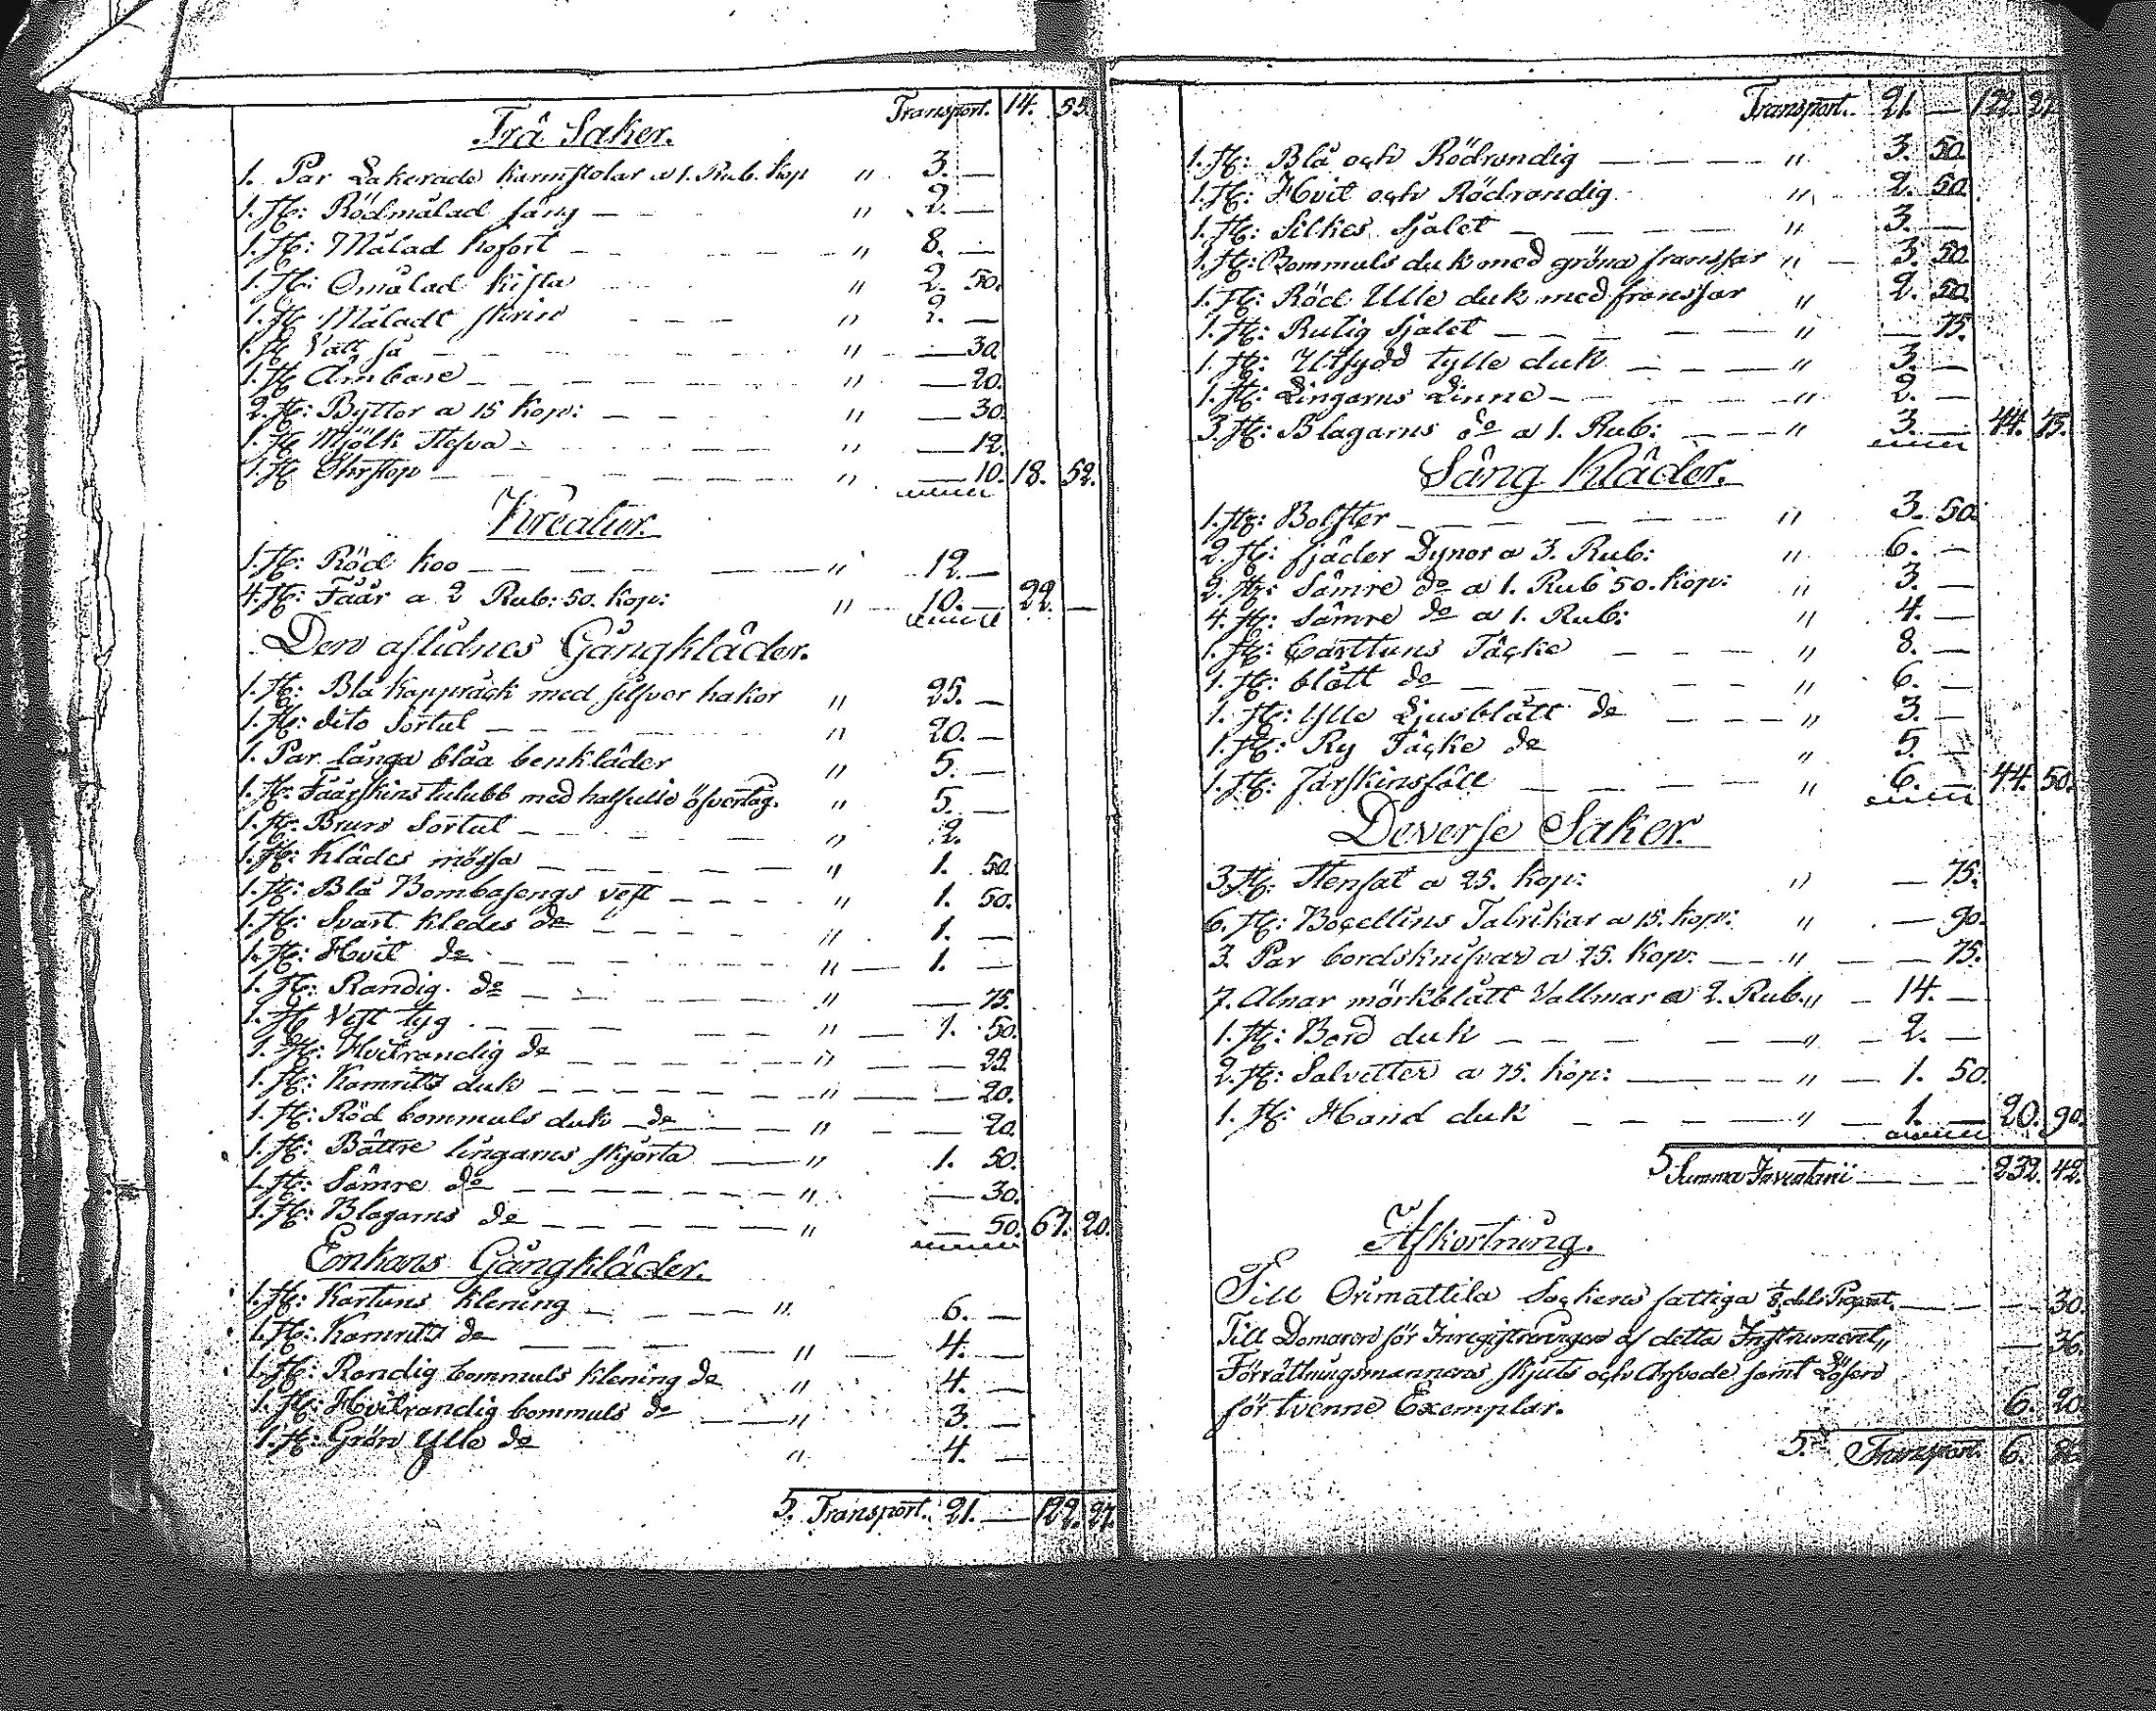 Transport. 14. 55.
Trä Saker.
1. Par Lakerade karmstolar a 1. Rub. Kop " 3. —
1. St: Rödmålad säng — " 2. —
1. St: Målad kofort — " 8. —
1. St: Omålad kista " 2. 50.
1. St Måladt skrin — " 2. —
1. St Vatt så — " — 30.
1. St Ämbare — " — 20.
2. St: Byttor a 15 Kop: — " — 30.
1. St Mjölk Stefva — " — 12.
1. St — " — 10. 18. 52.
Kreatur.
1. St: Röd koo — " 12. —
4. St: Fåår a 2 Rub: 50. Kop: " 10. — 22. —
Den aflidnes Gångkläder.
1. St: Blå kappråck med silfver hakor " 25. —
1. St: dito Sortut — " 20. —
1. Par långa blåa benkläder " 5. —
1. St: Fåårskins tulubb med halfulle öfvertåg. " 5. —
1. St: Brun Sortut — " 2.
1. St: Klädes mössa — " 1. 50.
1. St: Blå Bombasengs vest — " 1. 50.
1. St: Svart kledes do — " 1. —
1. St: Hvit do — " 1. —
1. St: Randig do — " — 75.
1. St Vest tyg — " 1. 50.
1. St: Hvitrandig do — " — 25.
1. St: Kamrits duk — " — 20.
1. St: Röd bommuls duk do — " — 20.
1. St: Bättre lingarns skjorta — " 1. 50.
1. St: Sämre do — " — 30.
1. St: Blagarns do — " — 50. 67. 20.
Enkans Gångkläder.
1. St: Kartuns klening — " 6. —
1. St: Kamrits do — " 4. —
1. St: Randig bommuls klening do " 4. —
1. St: Hvitrandig bommuls do — " 3. —
1. St: Grön ylle do " 4. —
S. Transport. 21. — 122. 27.
Transport. 21. — 122. 27.
1. St: Blå och Rödrandig — " 3. 50.
1. St: Hvit och Rödrandig " 2. 50.
1. St: Silkes Sjalet — " 3. —
1. St: Bommuls duk med gröna franssar " — 3. 50.
1. St: Röd Ulle duk med franssar " 2. 50.
1. St: Rutig Sjalet — " — 75.
1. St: Utsydd tylle duk — " 3. —
1. St: Lingarns Linne — " 2. —
3. St: Blagarns do a 1. Rub: — " 3. — 44. 75.
Säng Kläder.
1. St: Bolster — " 3. 50.
2. St: fjäder Dynor a 3. Rub: " 6. —
2. St: Sämre do a 1. Rub 50. Kop: " 3. —
4. St: Sämre do a 1. Rub: " 4. —
1. St: Carttuns Täcke — " 8. —
1. St: blått do — " 6. —
1. St: Ylle Ljusblått do — " 3. —
1. St: Ry Täcke do " 5. —
1. St: Fårskinsfäll — " 6. — 44. 50.
Diverse Saker.
3. St: Stenfat a 25. Kop: " — 75.
6. St: Tabrikar a 15. Kop: " — 90.
3. Par bordsknifvar a 25. Kop: — " — 75.
7. Alnar mörkblått Vallmar a 2. Rub. " — 14. —
1. St: Bord duk — " — 2. —
2. St: Salvetter a 75. Kop: — " — 1. 50.
1. St: Hand duk — " 1. — 20. 90.
S. Summa Inventarii — 232. 42.
Afkortning.
Till Orimattila Sockens fattiga 1/8 dels Procent. — 30.
Till Domaren för Inregistreringen af detta Instrument " — 36.
Förrättningsmannens skjuts och Arfvode samt Lösen
för tvenne Exemplar. 6. 20.
S. Transport. 6. 86.